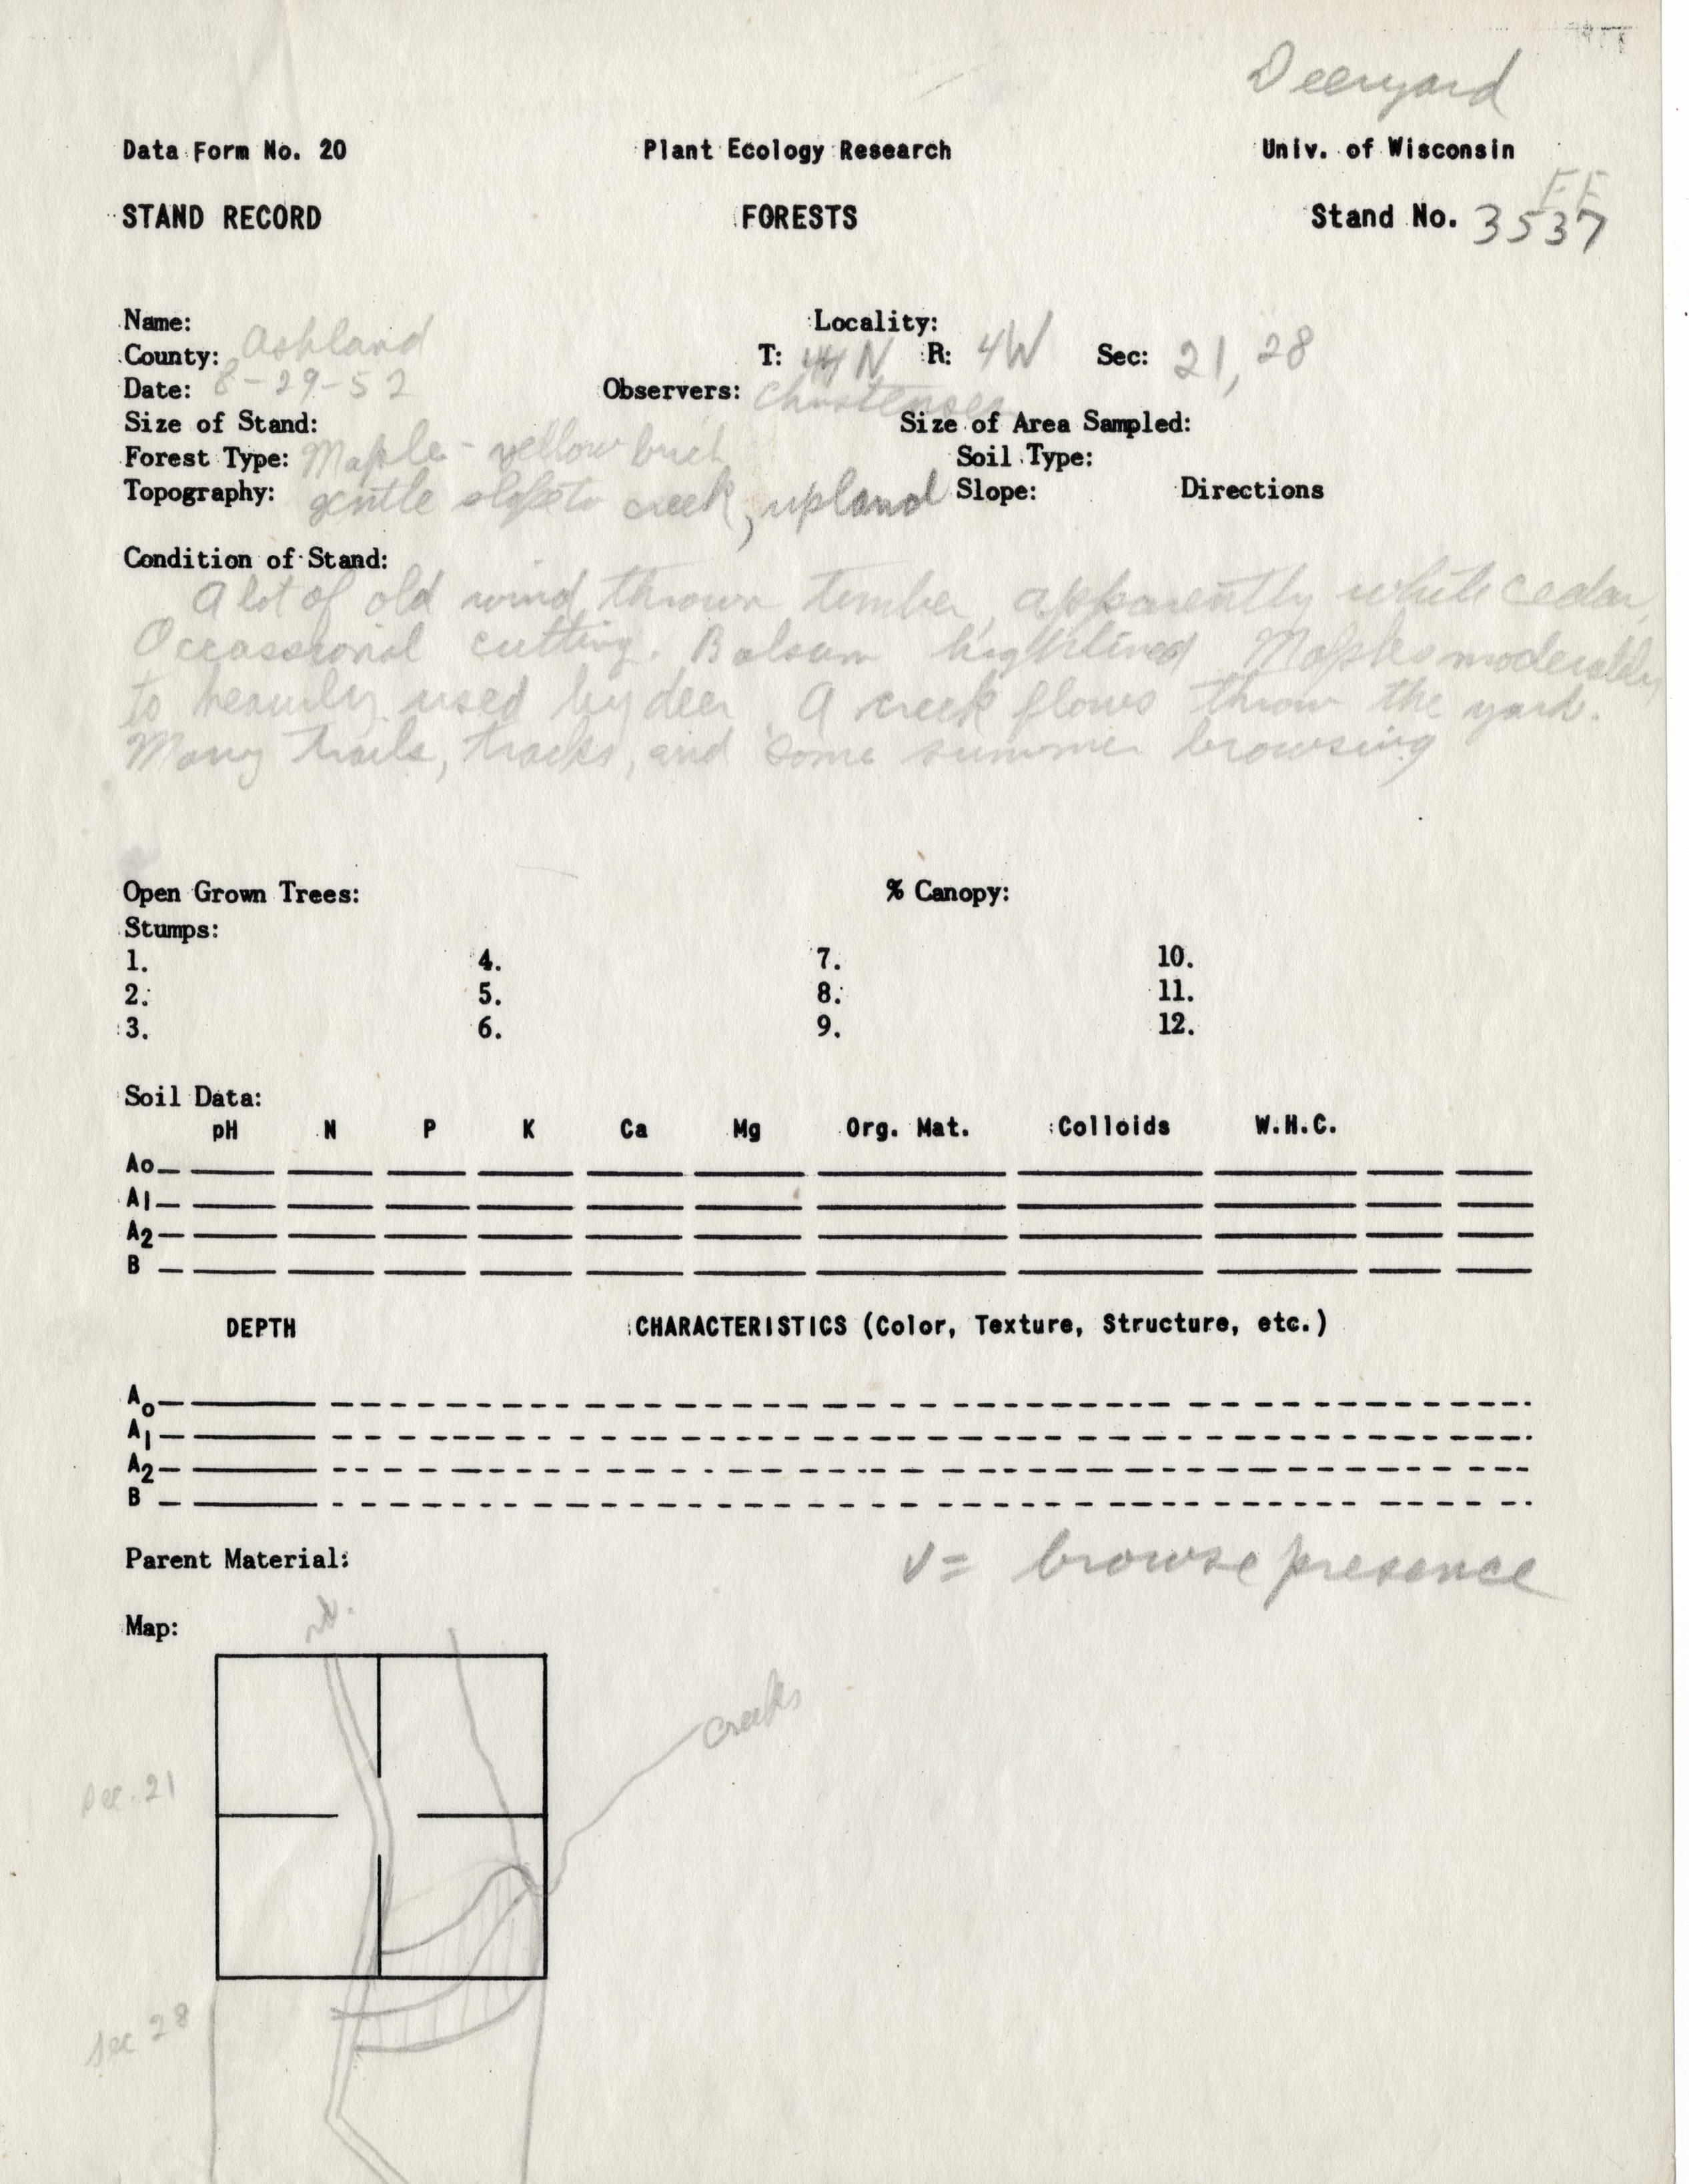 Deeryard
Data Form No. 20 Plant Ecology Research Univ. of Wisconsin
FF
STAND RECORD FORESTS Stand No. 3537
Name: Locality:
County: Ashland T: N R: 4W Sec: 21, 28
Date: 8-29-52 Observers: Christensen
Size of Stand: Size of Area Sampled:
Forest Type: Maple - yellow birch Soil Type:
Topography: gentle slope to creek, upland Slope: Directions
Condition of Stand:
A lot of old wind thrown timber, apparently white cedar,
Occassional cutting. Balsam highlined Maples moderately
to heavily used by deer. A creek flows throw the yard.
Many trails, tracks, and some summer browsing
Open Grown Trees: % Canopy:
Stumps:
1. 4. 7. 10.
2. 5. 8. 11.
3. 6. 9. 12.
Soil Data:
pH N P K Ca Mg Org. Mat. Colloids W.H.C.
Ao
A1
A2
B
DEPTH CHARACTERISTICS (Color, Texture, Structure, etc.)
Ao
A1
A2
B
Parent Material: v = browse presence
Map: rd.
creeks
Sec. 21
Sec 28